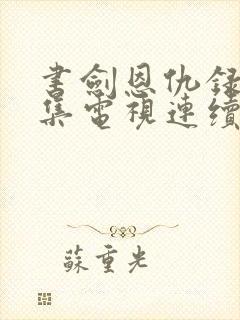 書劍恩仇録
集電視連續
蘇重光